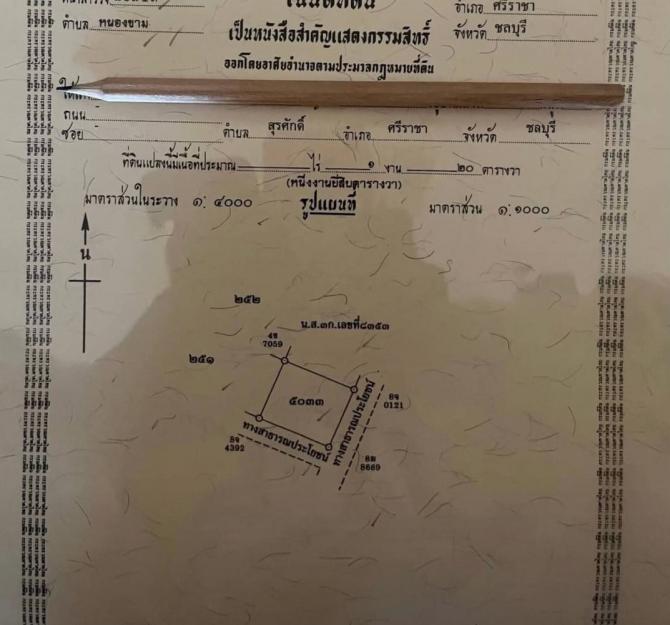 โฉนดที่ดิน
อำเภอ ศรีราชา
ตำบล หนองขาม
เป็นหนังสือสำคัญแสดงกรรมสิทธิ์
จังหวัด ชลบุรี
ออกโดยอาศัยอำนาจตามประมวลกฎหมายที่ดิน
ถนน
ซอย ตำบล สุรศักดิ์ อำเภอ ศรีราชา จังหวัด ชลบุรี
ที่ดินแปลงนี้มีเนื้อที่ประมาณ ไร่ ๑ งาน ๒๐ ตารางวา
(หนึ่งงานยี่สิบตารางวา)
มาตราส่วนในระวาง ๑: ๔๐๐๐ รูปแผนที่ มาตราส่วน ๑:๑๐๐๐
น
๒๕๒
น.ส.๓ก.เลขที่๘๓๕๓
4ข
7059
๒๕๑
๕๐๓๓
8จ
0121
ทางสาธารณประโยชน์
ทางสาธารณประโยชน์
8จ
4392
8ม
8669